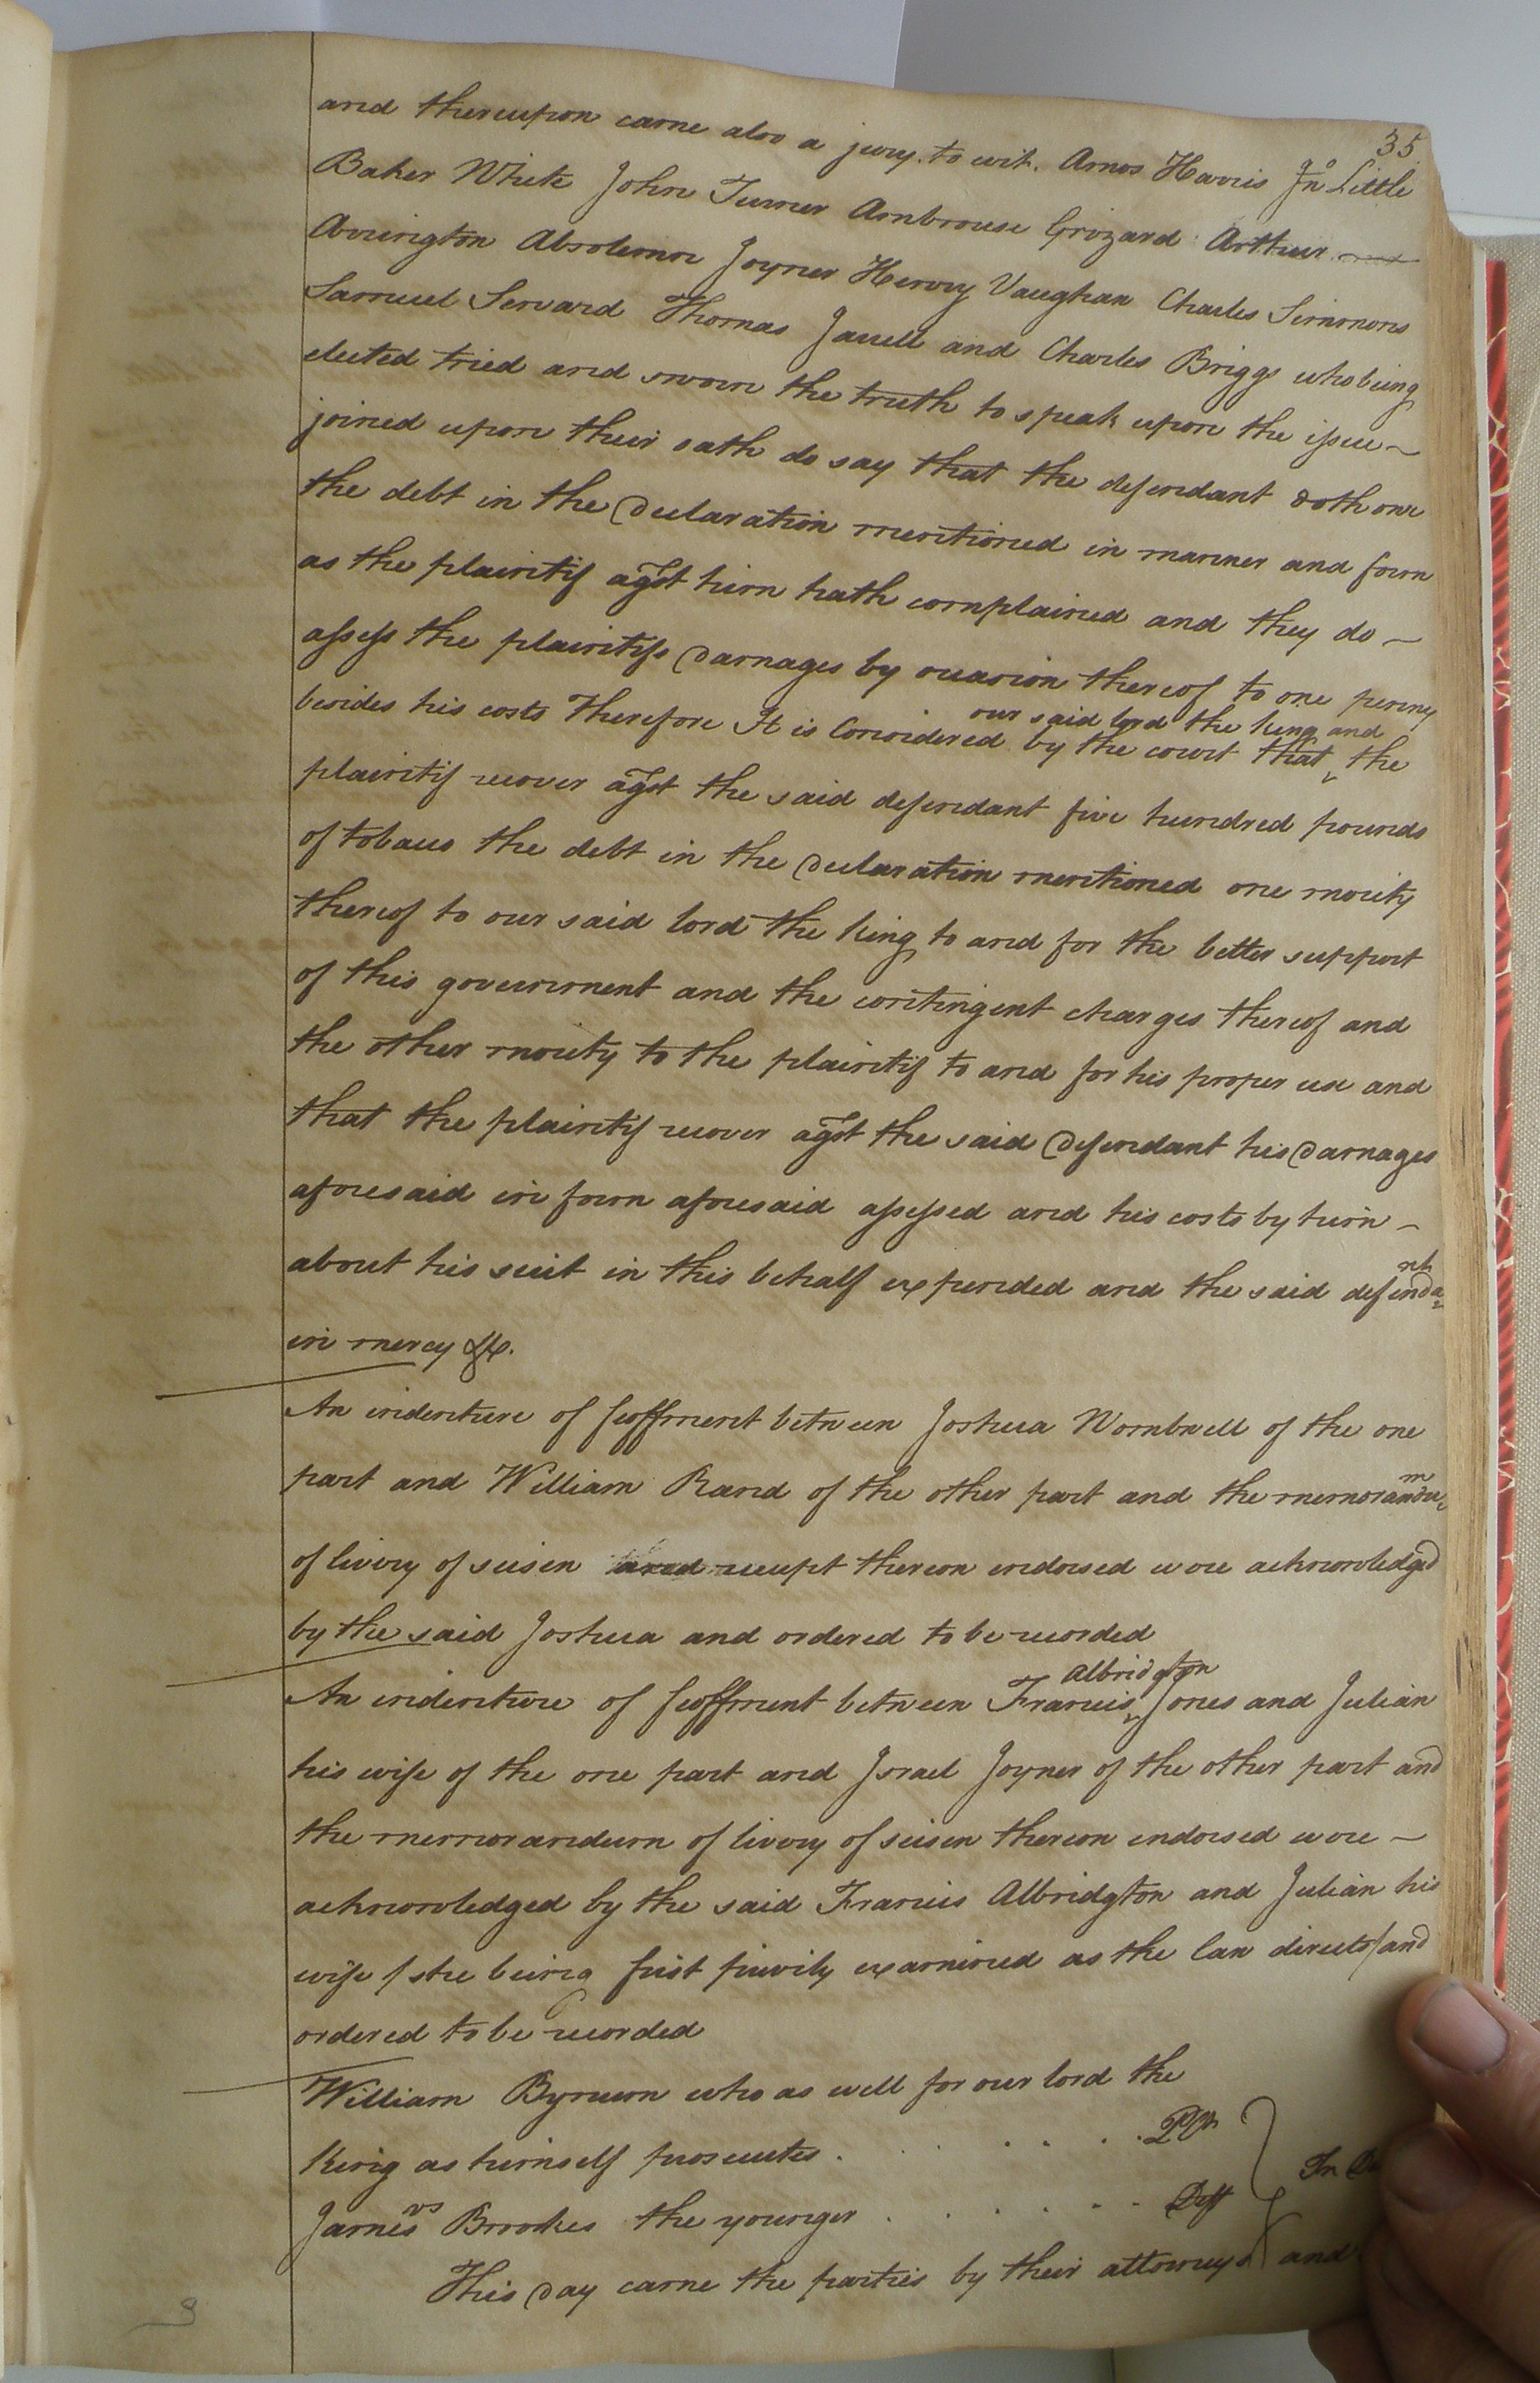 35
and thereupon came also a jury. to wit. Amos Harris Jno Little
Baker White John Turner Ambrouse Grizard Arthur
Arrington Absolemn Joyner Henry Vaughan Charles Simmons
Samuel Servard Thomas Jarrell and Charles Briggs who being
elected tried and sworn the truth to speak upon the issue
joined upon their oath do say that the defendant doth owe
the debt in the Declaration mentioned in manner and form
as the plaintif agst him hath complained and they do
assess the plaintifs Damages by occasion thereof to one penny
our said lord the king and
besides his costs Therefore It is Considered by the court that the
plaintif recover agst the said defendant five hundred pounds
of tobacco the debt in the Declaration mentioned one moiety
thereof to our said lord the king to and for the better support
of this government and the contingent charges thereof and
the other moiety to the plaintif to and for his proper use and
that the plaintif recover agst the said Defendant his Damages
aforesaid in form aforesaid assessed and his costs by him
about his suit in this behalf expended and the said defendant
in mercy &c.
An indenture of feoffment between Joshua Wombwell of the one
part and William Rand of the other part and the memorandum
of livery of seisen and receipt thereon endorsed were acknowledged
by the said Joshua and ordered to be recorded
Albridgton
An indenture of feoffment between Francis Jones and Julian
his wife of the one part and Israel Joyner of the other part and
the memorandum of livery of seisen thereon endorsed were
acknowledged by the said Francis Albridgton and Julian his
wife /she being first privily examined as the law directs/ and
ordered to be recorded
William Bynum who as well for our lord the
King as himself prosecutes . . . . . . Plt
vs
James Brookes the younger . . . . . Deft
In
This Day came the parties by their attorneys and